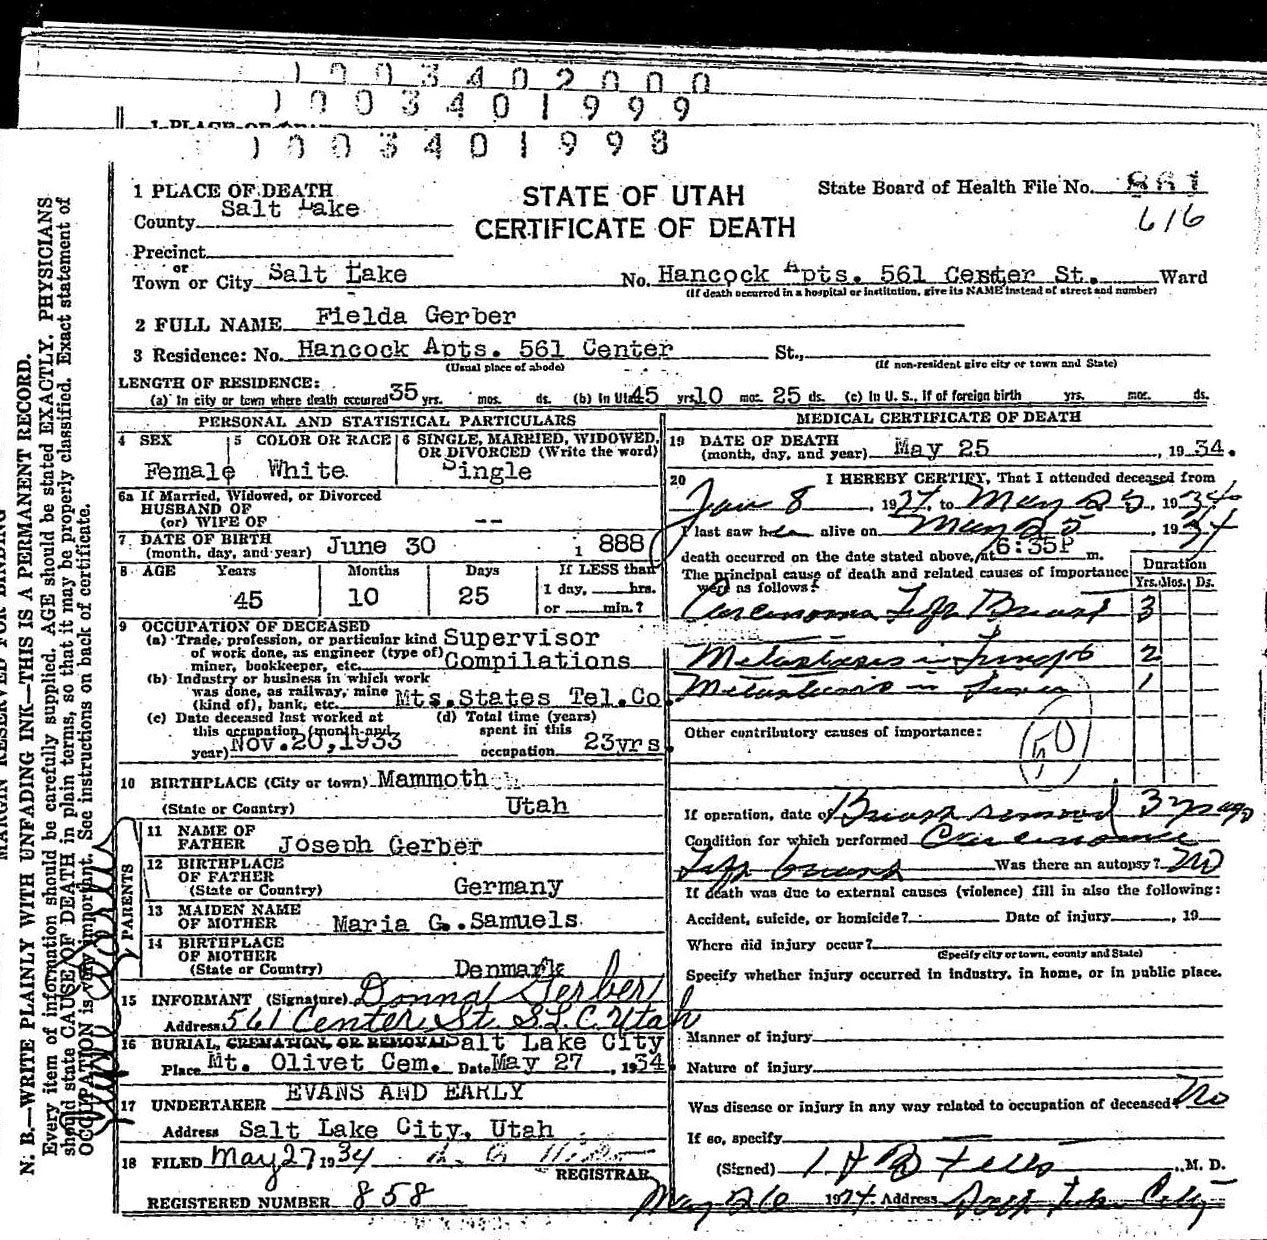 1003402000
1003401999
1003401998
1 PLACE OF DEATH
STATE OF UTAH
CERTIFICATE OF DEATH
State Board of Health File No. 861
616
County Salt Lake
Precinct
or
Town or City Salt Lake No. Hancock Apts. 561 Center St. Ward
(If death occurred in a hospital or institution, give its NAME instead of street and number)
2 FULL NAME Fielda Gerber
3 Residence: No. Hancock Apts. 561 Center St.,
(Usual place of abode) (If non-resident give city or town and State)
LENGTH OF RESIDENCE:
(a) In city or town where death occurred 35 yrs. mos. ds. (b) In Utah 45 yrs. 10 mos. 25 ds. (c) In U. S., if of foreign birth yrs. mos. ds.
PERSONAL AND STATISTICAL PARTICULARS
4 SEX Female
5 COLOR OR RACE White
6 SINGLE, MARRIED, WIDOWED, OR DIVORCED (Write the word) Single
6a If Married, Widowed, or Divorced
HUSBAND OF
(or) WIFE OF --
7 DATE OF BIRTH
(month, day, and year) June 30 1888
8 AGE Years Months Days If LESS than
45 10 25 1 day, hrs.
or min.?
9 OCCUPATION OF DECEASED
(a) Trade, profession, or particular kind Supervisor
of work done, as engineer (type of) Compilations
miner, bookkeeper, etc.
(b) Industry or business in which work
was done, as railway, mine Mts. States Tel. Co.
(kind of), bank, etc.
(c) Date deceased last worked at
this occupation (month and
year) Nov. 20, 1933
(d) Total time (years)
spent in this
occupation 23yrs.
10 BIRTHPLACE (City or town) Mammoth
(State or Country) Utah
PARENTS
11 NAME OF
FATHER Joseph Gerber
12 BIRTHPLACE
OF FATHER
(State or Country) Germany
13 MAIDEN NAME
OF MOTHER Maria G. Samuels
14 BIRTHPLACE
OF MOTHER
(State or Country) Denmark
15 INFORMANT (Signature) Donna Gerber
Address 561 Center St. S.L.C. Utah
16 BURIAL, CREMATION, OR REMOVAL Salt Lake City
Place Mt. Olivet Cem. Date May 27, 1934
17 UNDERTAKER EVANS AND EARLY
Address Salt Lake City, Utah
18 FILED May 27 1934
REGISTRAR
REGISTERED NUMBER 858
MEDICAL CERTIFICATE OF DEATH
19 DATE OF DEATH
(month, day, and year) May 25, 1934.
20 I HEREBY CERTIFY, That I attended deceased from
Jan 8, 1934, to May 25, 1934
I last saw her alive on May 25 1934
death occurred on the date stated above, at 6:35P m.
The principal cause of death and related causes of importance
were as follows:
Duration
Yrs. Mos. Ds.
Carcinoma Left Breast 3
Metastasis in Lungs 2
Metastasis in Liver 1
Other contributory causes of importance:
50
If operation, date of Breast removed 3 yrs ago
Condition for which performed Carcinoma
Left breast Was there an autopsy? No
If death was due to external causes (violence) fill in also the following:
Accident, suicide, or homicide? Date of injury, 19
Where did injury occur?
(Specify city or town, county and State)
Specify whether injury occurred in industry, in home, or in public place.
Manner of injury
Nature of injury
Was disease or injury in any way related to occupation of deceased? No
If so, specify
(Signed) M. D.
May 26 1934. Address Salt Lake City
MARGIN RESERVED FOR BINDING
N. B.—WRITE PLAINLY WITH UNFADING INK—THIS IS A PERMANENT RECORD.
Every item of information should be carefully supplied. AGE should be stated EXACTLY. PHYSICIANS
should state CAUSE OF DEATH in plain terms, so that it may be properly classified. Exact statement of
OCCUPATION is very important. See instructions on back of certificate.